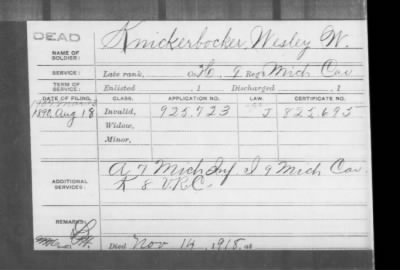 DEAD
NAME OF SOLDIER: Knickerbocker, Wesley W.
SERVICE: Late rank, Co. H, 9 Reg't Mich Cav
TERM OF SERVICE: Enlisted , 1 Discharged , 1
DATE OF FILING. CLASS. APPLICATION NO. LAW. CERTIFICATE NO.
1890, Aug 18 Invalid, 925,723 J 825,695
Widow,
Minor,
ADDITIONAL SERVICES: A 7 Mich Inf I 9 Mich Cav.
K 8 V.R.C.
REMARKS:
Died Nov 14, 1915, at